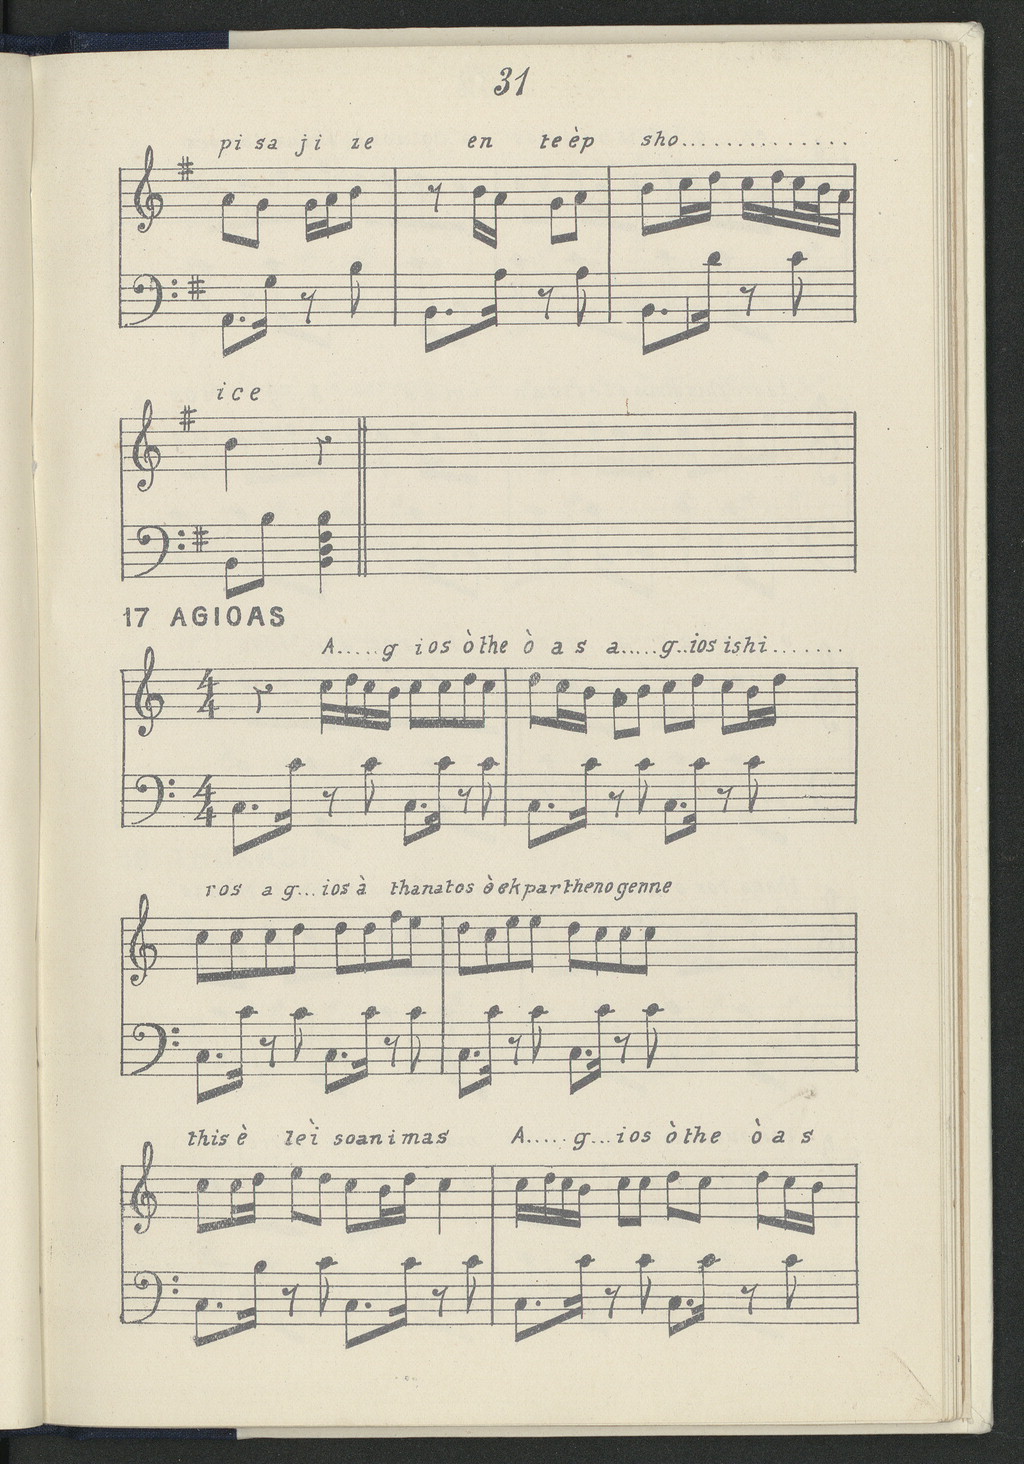 31
pi sa ji ze en te èp sho..............
ice
17 AGIOAS
A.....g ios ò the ò a s a.....g..ios ishi.......
4
4
4
4
ros a g...ios à thanatos ò ekparthenogenne
this è leì soanimas A.....g...ios ò the ò a s